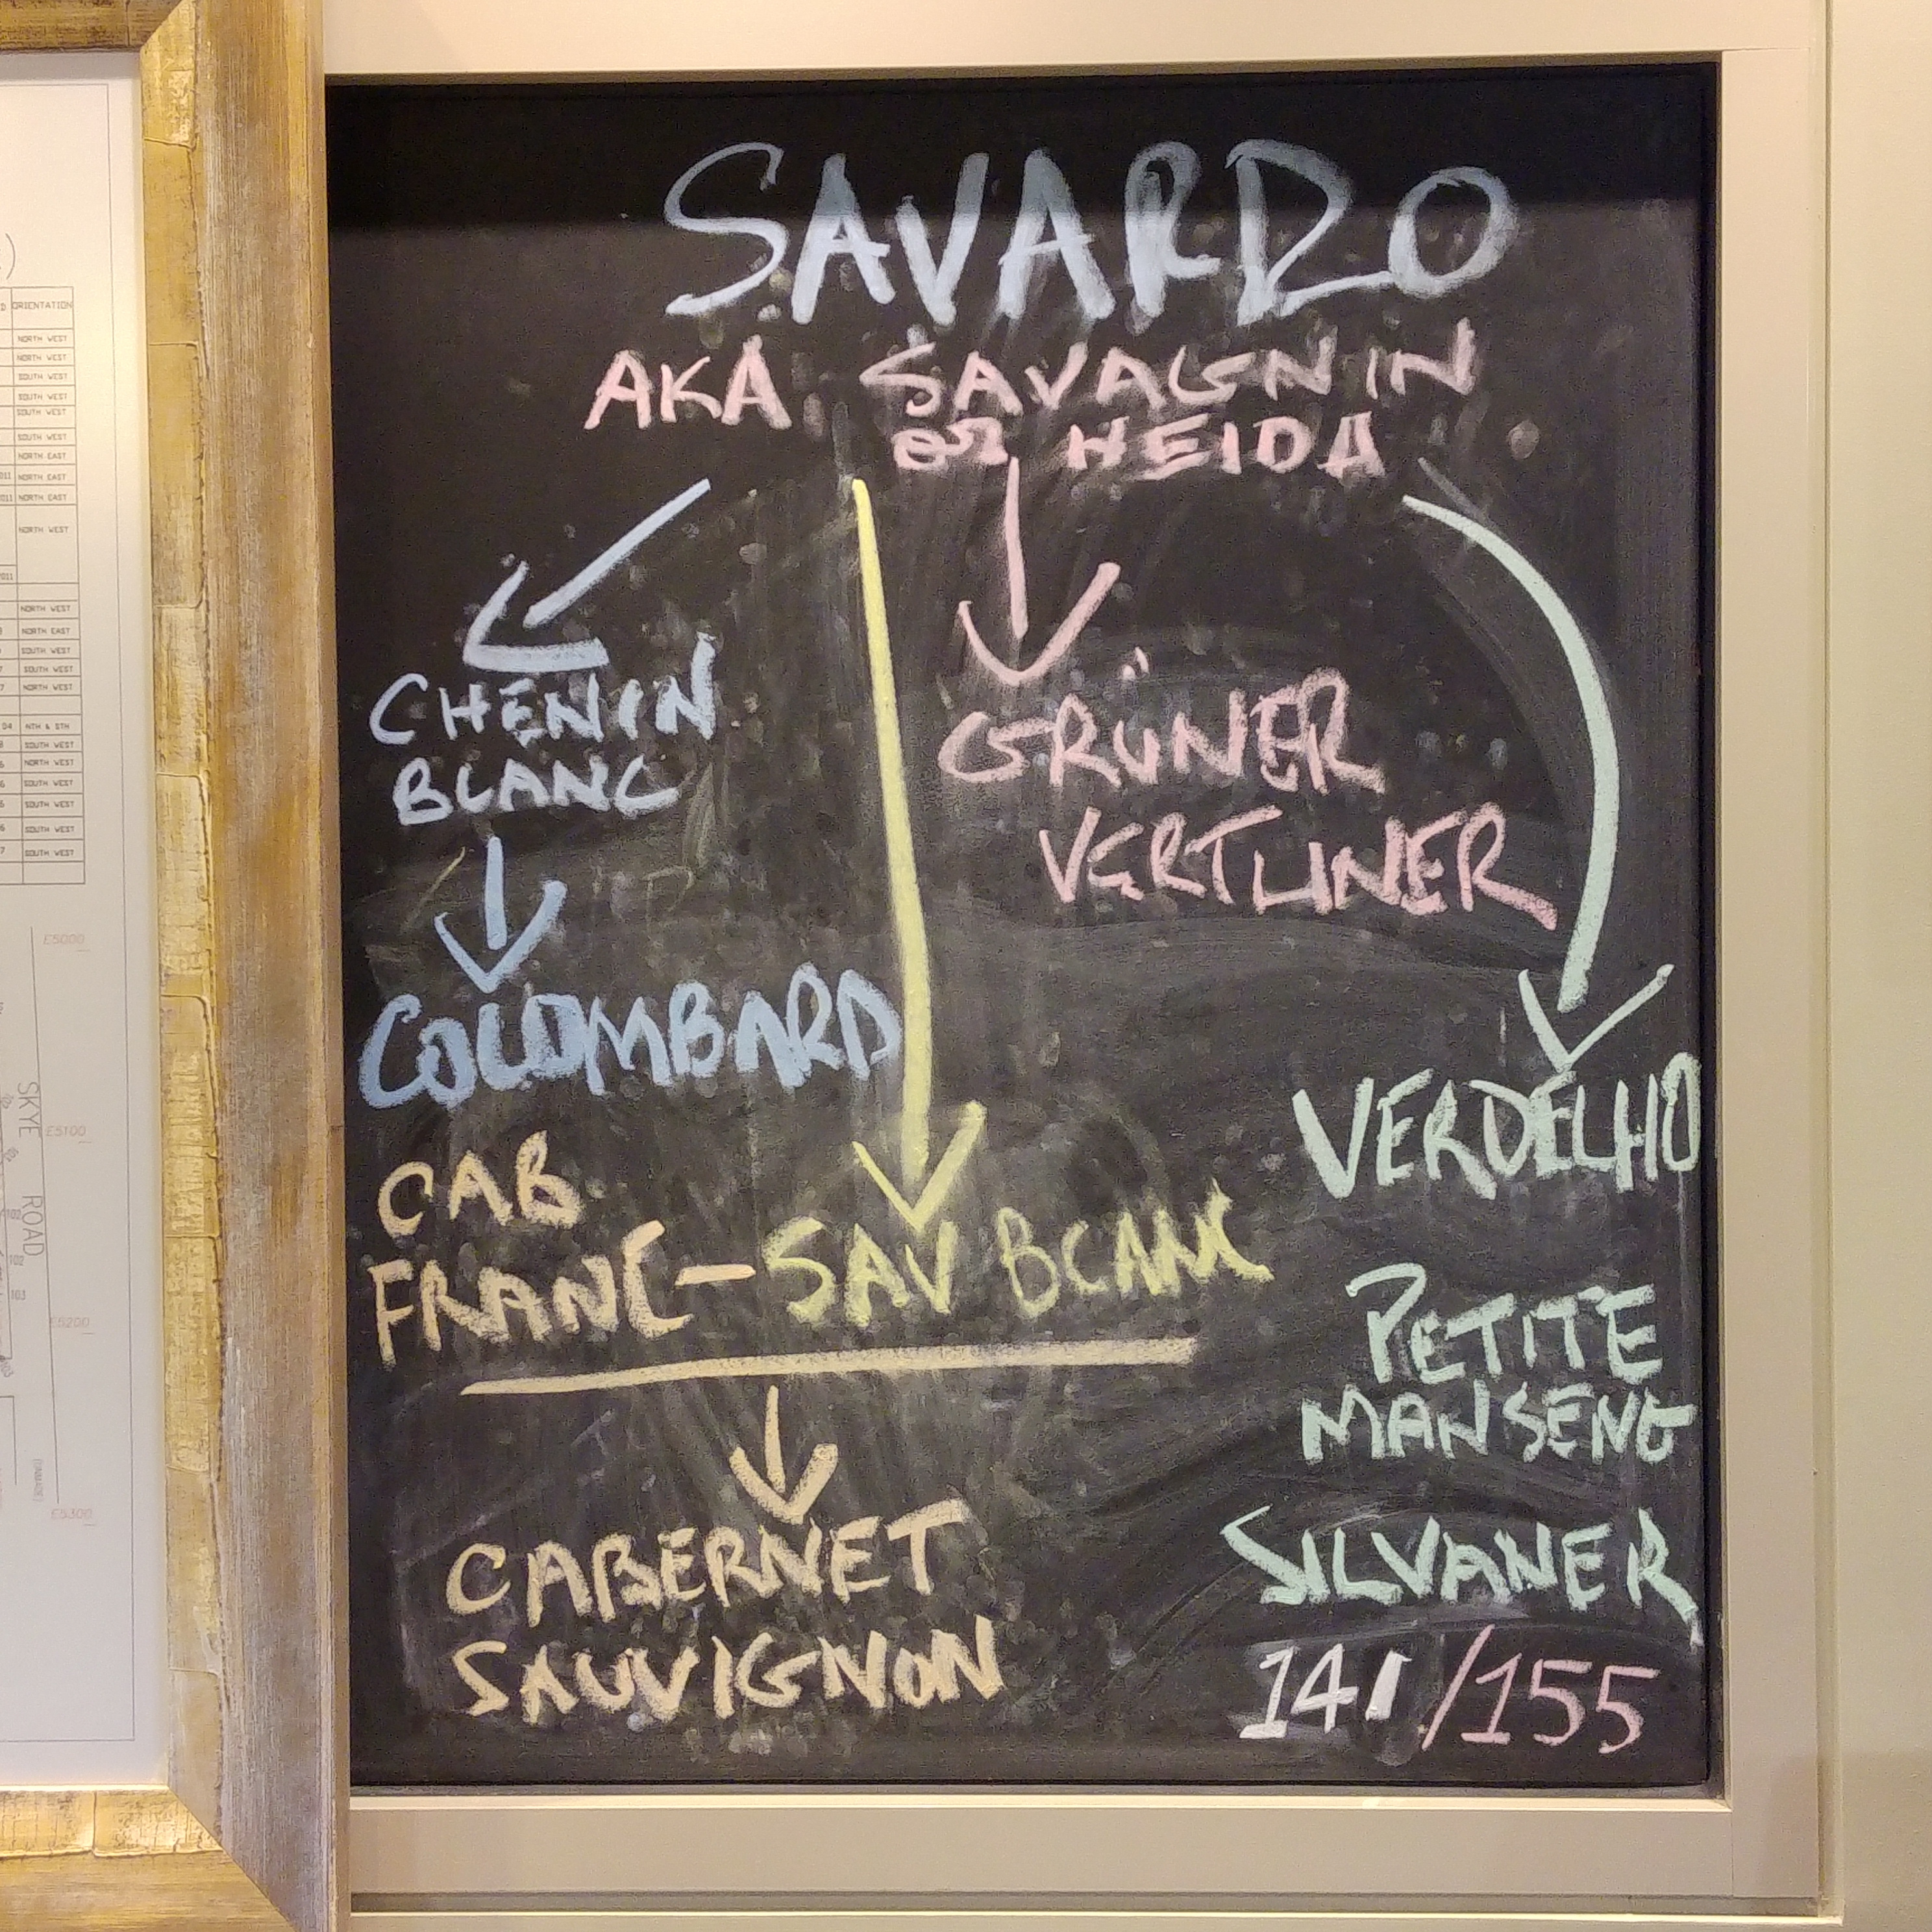 SAVARDO
AKA SAVAGNIN
OR HEIDA
CHENIN
BLANC
GRÜNER
VERTLINER
COLOMBARD
VERDELHO
CAB
FRANC - SAV BLANC
PETITE
MANSENG
CABERNET
SAUVIGNON
SILVANER
141/155
ORIENTATION
NORTH WEST
NORTH WEST
SOUTH WEST
SOUTH WEST
SOUTH WEST
SOUTH WEST
NORTH EAST
NORTH EAST
NORTH EAST
NORTH WEST
NORTH WEST
NORTH EAST
SOUTH WEST
SOUTH WEST
NORTH WEST
NTH & STH
SOUTH WEST
NORTH WEST
SOUTH WEST
SOUTH WEST
SOUTH WEST
SOUTH WEST
E5000
SKYE ROAD
E5100
102
102
103
E5200
E5300